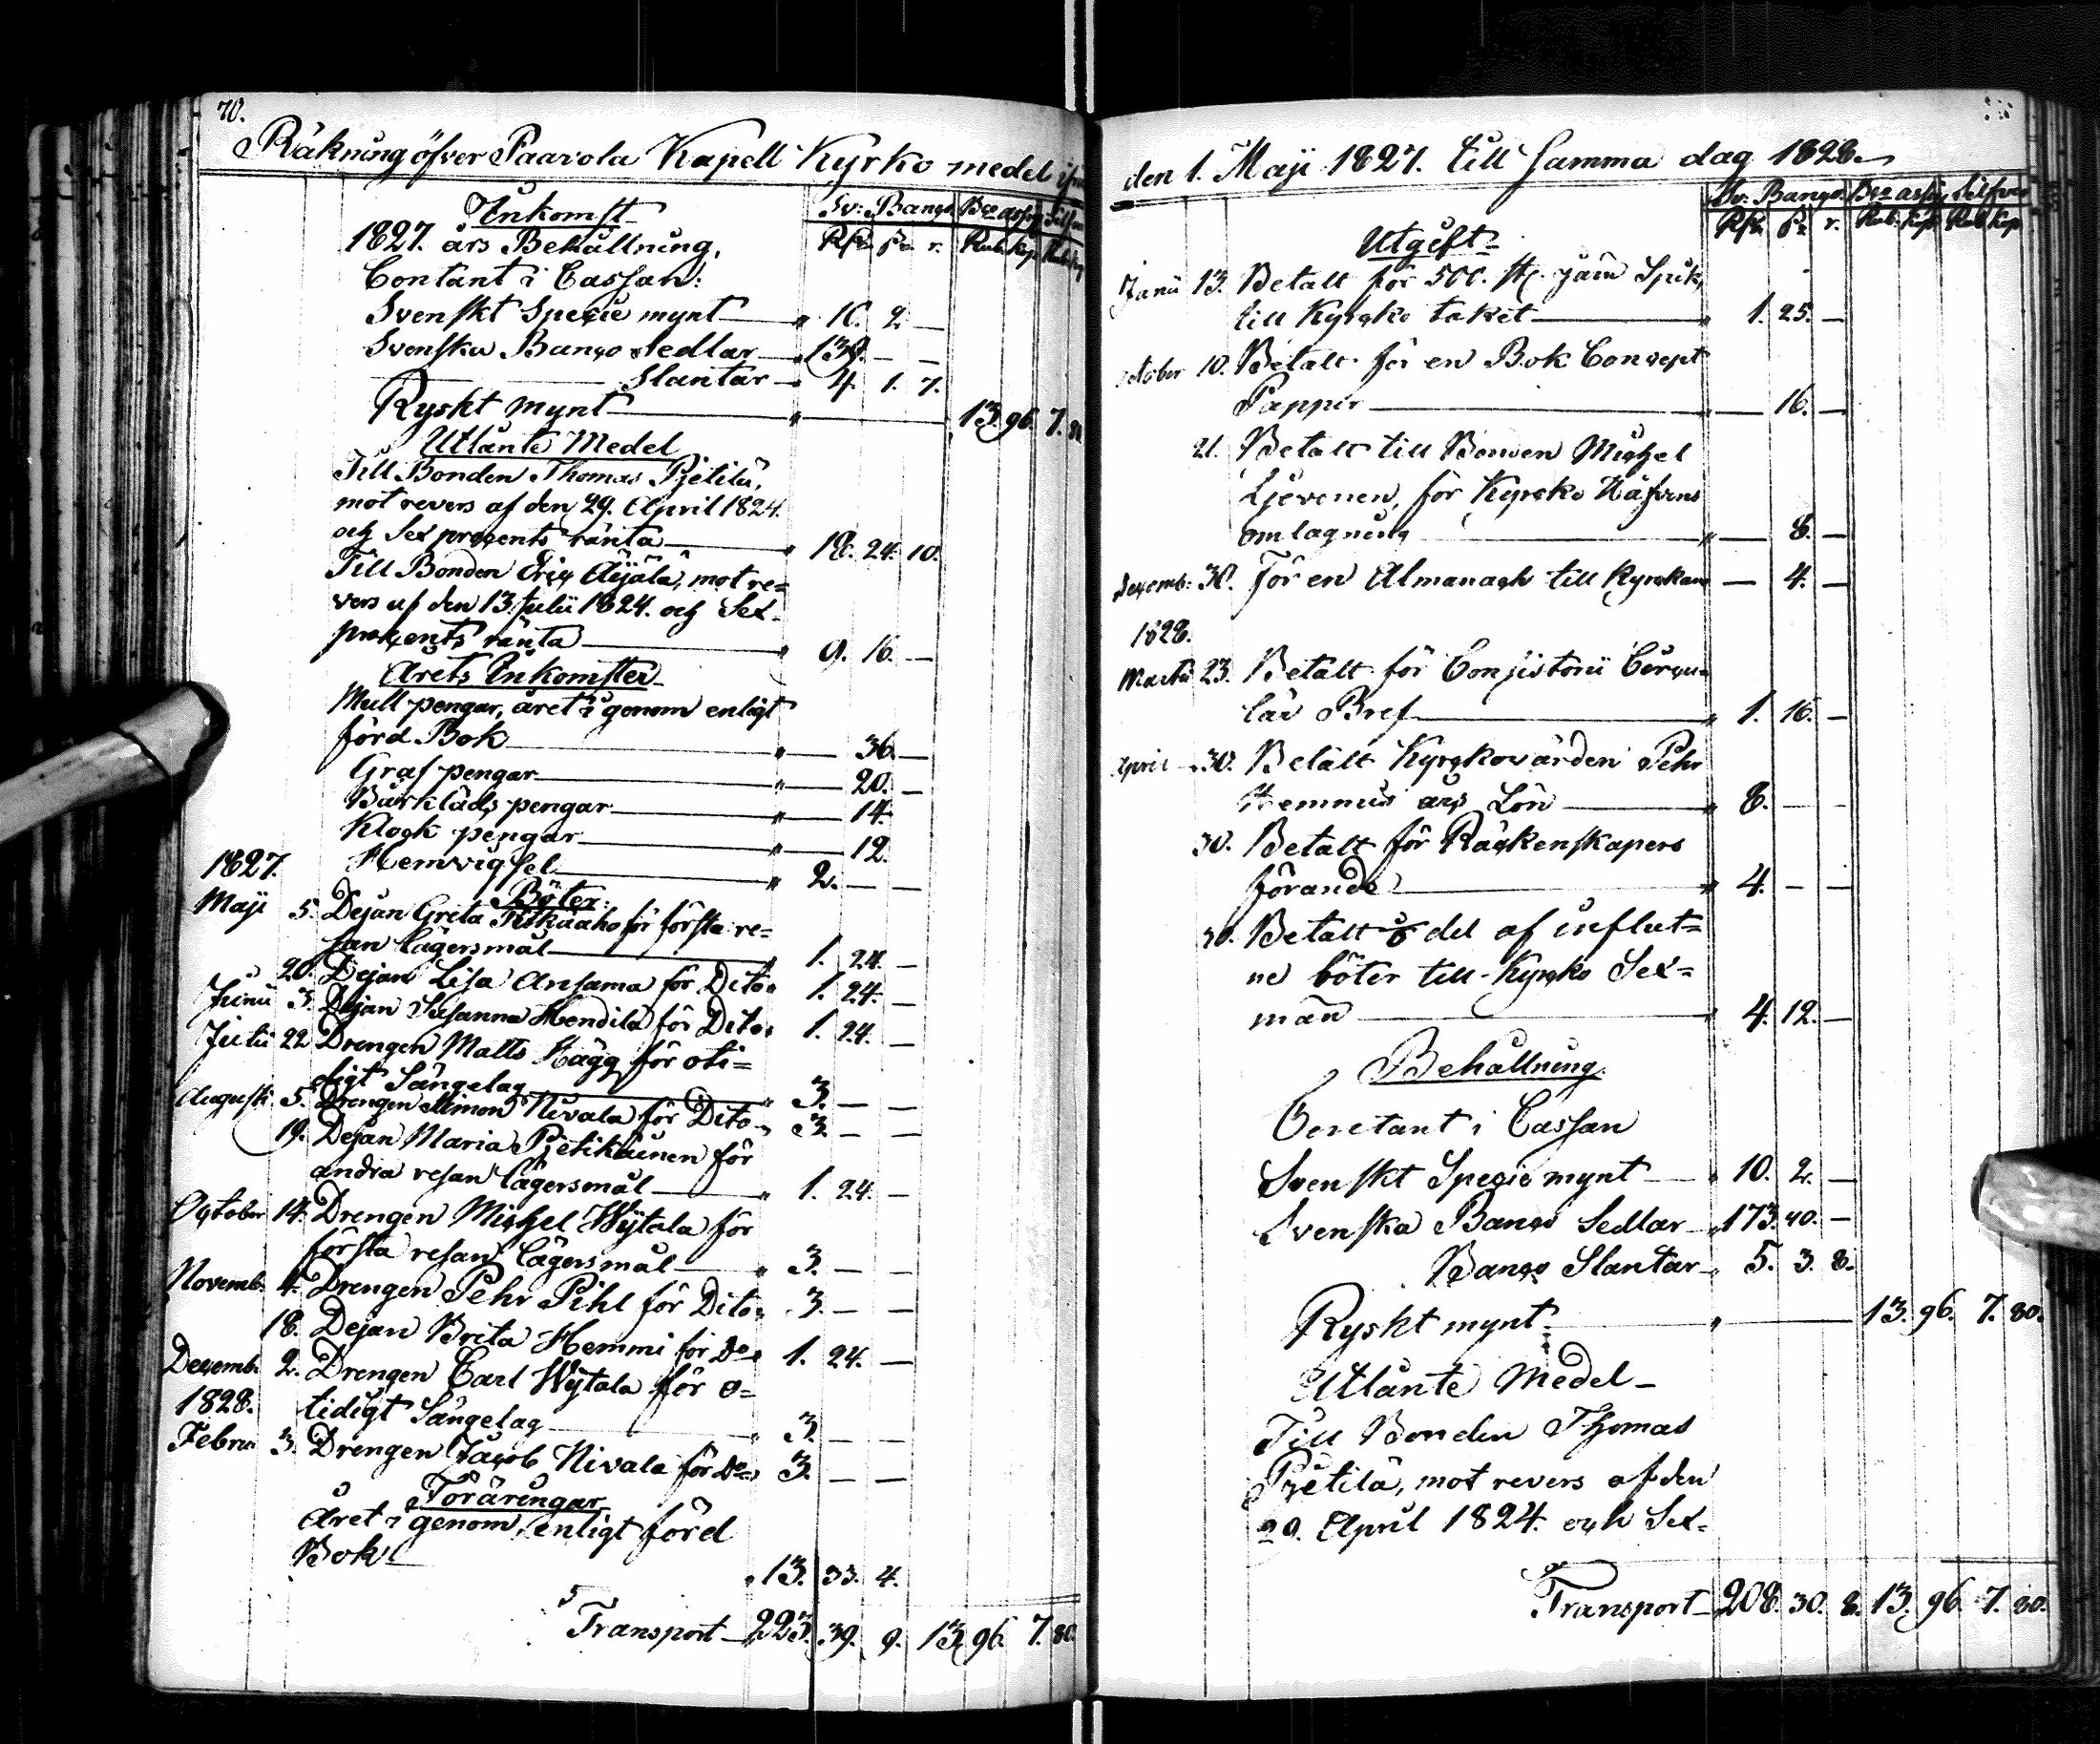 70.
Räkning öfver Paavola Kapell Kyrko medel ifrån
Inkomst
Sv: Banco Bco assig Silfver
Rdr sk. r. Rub. kop. Rub. kop
1827. års Behållning,
Contant i Cassan:
Svenskt Specie mynt " 10. 2 —
Svenska Banco Sedlar " 139. — —
Slantar " 4. 1. 7.
Ryskt mynt " 13. 96. 7. 80.
Utlånte Medel
Till Bonden Thomas Pietilä,
mot revers af den 29. April 1824.
och Sex procents ränta " 18. 24. 10.
Till Bonden Eric Äijälä, mot re=
vers af den 13 Julii 1824. och Sex
procents ränta " 9. 16. —
Årets Inkomster
Mull pengar, året i genom enligt
förd Bok " — 36. —
Graf pengar " — 20. —
Bårkläds pengar " — 14.
Klock pengar " — 12.
1827. Hemvigsel " 2. — —
Böter:
Maji 5. Dejan Greta Pitkäaho för första re=
san Lägersmål " 1. 24. —
20. Dejan Lisa Ansama för Dito " 1. 24. —
Junii 3. Dejan Susanna Hendilä för Dito " 1. 24. —
Julii 22 Drengen Matts Hägg för oti=
digt Sängelag " 3. — —
Augusti 5. Drengen Simon Nivala för Dito " 3. — —
19. Dejan Maria Pietikäinen för
andra resan Lägersmål " 1. 24. —
October 14. Drengen Michel Wijtala för
första resan Lägersmål " 3. — —
Novemb. 4. Drengen Pehr Pihl för Dito " 3. — —
18. Dejan Brita Hemmi för Do " 1. 24. —
Decemb. 2. Drengen Carl Wijtala för o=
1828. tidigt Sängelag " 3. — —
Febru 3. Drengen Jacob Nivala för Do " 3. — —
Föräringar
Året i genom, enligt förd
Bok " 13. 33. 4.
Transport 223. 39. 9. 13. 96. 7. 80.
den 1. Maji 1827. till samma dag 1828.
Utgift
Sv: Banco Bco assig Silfver
Rdr sk. r. Rub. kop. Rub kop
Junii 13. Betalt för 500. st. järn Spik,
till Kyrcko taket " 1. 25. —
October 10. Betalt för en Bok Concept
Papper " — 16. —
21. Betalt till Bonden Michel
för Kyrcko Håfvens
omlagning " — 8. —
Decemb: 30. För en Almanach till Kyrckan — 4. —
1828.
Martii 23. Betalt för Consistorii Circu=
lär Bref " 1. 16. —
April 30. Betalt Kyrckovärden Pehr
Hemmis års Lön " 8. — —
30. Betalt för Räckenskapers
förande " 4. — —
30. Betalt del af influt=
ne böter till Kyrcko Sex=
män " 4. 12. —
Behållning
Contant i Cassan
Svenskt Specie mynt " 10. 2. —
Svenska Banco Sedlar " 173. 40. —
Banco Slantar " 5. 3. 8.
Ryskt mynt " 13. 96. 7. 80.
Utlånte Medel
Till Bonden Thomas
Pietilä, mot revers af den
29. April 1824. och Sex=
Transport 208. 30. 8. 13. 96 7. 80.